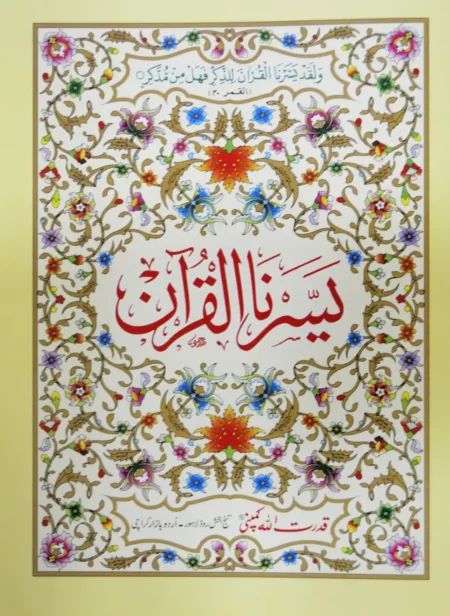 وَلَقَدْ يَسَّرْنَا الْقُرْاٰنَ لِلذِّكْرِ فَهَلْ مِنْ مُّدَّكِرٍ
(القمر ۴۰)
يَسَّرْنَا الْقُرْآن
قدرت اللہ کمپنی گنج بخش روڈ لاہور - اُردو بازار کراچی